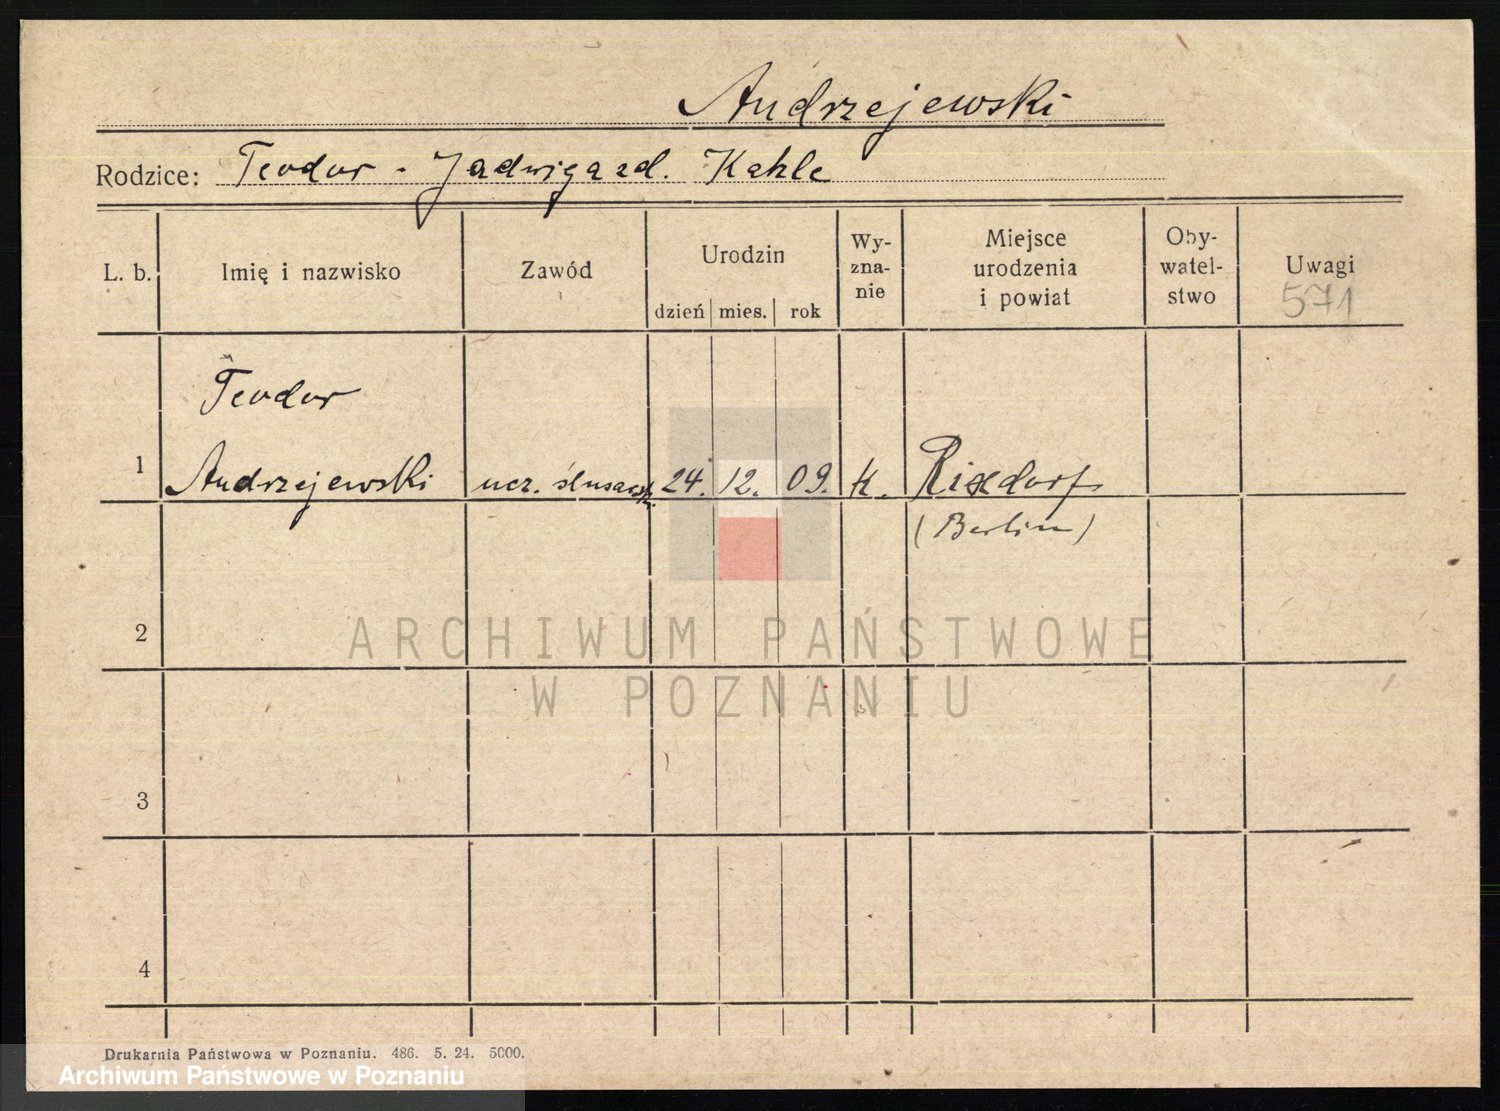 Andrzejewski
Rodzice: Teodor - Jadwiga zd. Kahle
L. b. Imię i nazwisko Zawód Urodzin Wy-zna-nie Miejsce urodzenia i powiat Oby-watel-stwo Uwagi
dzień mies. rok
571
Teodor
1 Andrzejewski ucz. ślusarsk. 24. 12. 09. k. Rixdorf
(Berlin)
2
ARCHIWUM PAŃSTWOWE
W POZNANIU
3
4
Drukarnia Państwowa w Poznaniu. 486. 5. 24. 5000.
Archiwum Państwowe w Poznaniu